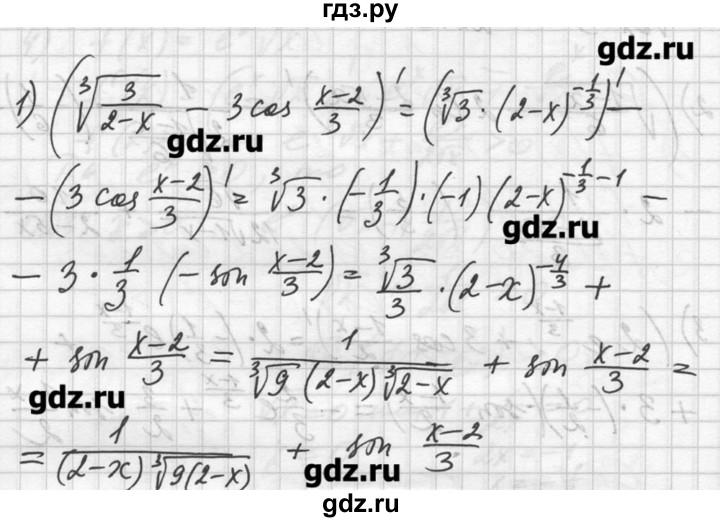 гдз.ру
gdz.ru
1) (∛(3/(2-x)) - 3 cos (x-2)/3)' = (∛3 · (2-x)^(-1/3))' -
gdz.ru
- (3 cos (x-2)/3)' = ∛3 · (-1/3) · (-1) (2-x)^(-1/3-1) -
gdz.ru
- 3 · 1/3 (- sin (x-2)/3) = ∛3/3 · (2-x)^(-4/3) +
+ sin (x-2)/3 = 1/(∛9 (2-x) ∛(2-x)) + sin (x-2)/3 =
gdz.ru
= 1/((2-x) ∛(9(2-x))) + sin (x-2)/3
gdz.ru
gdz.ru